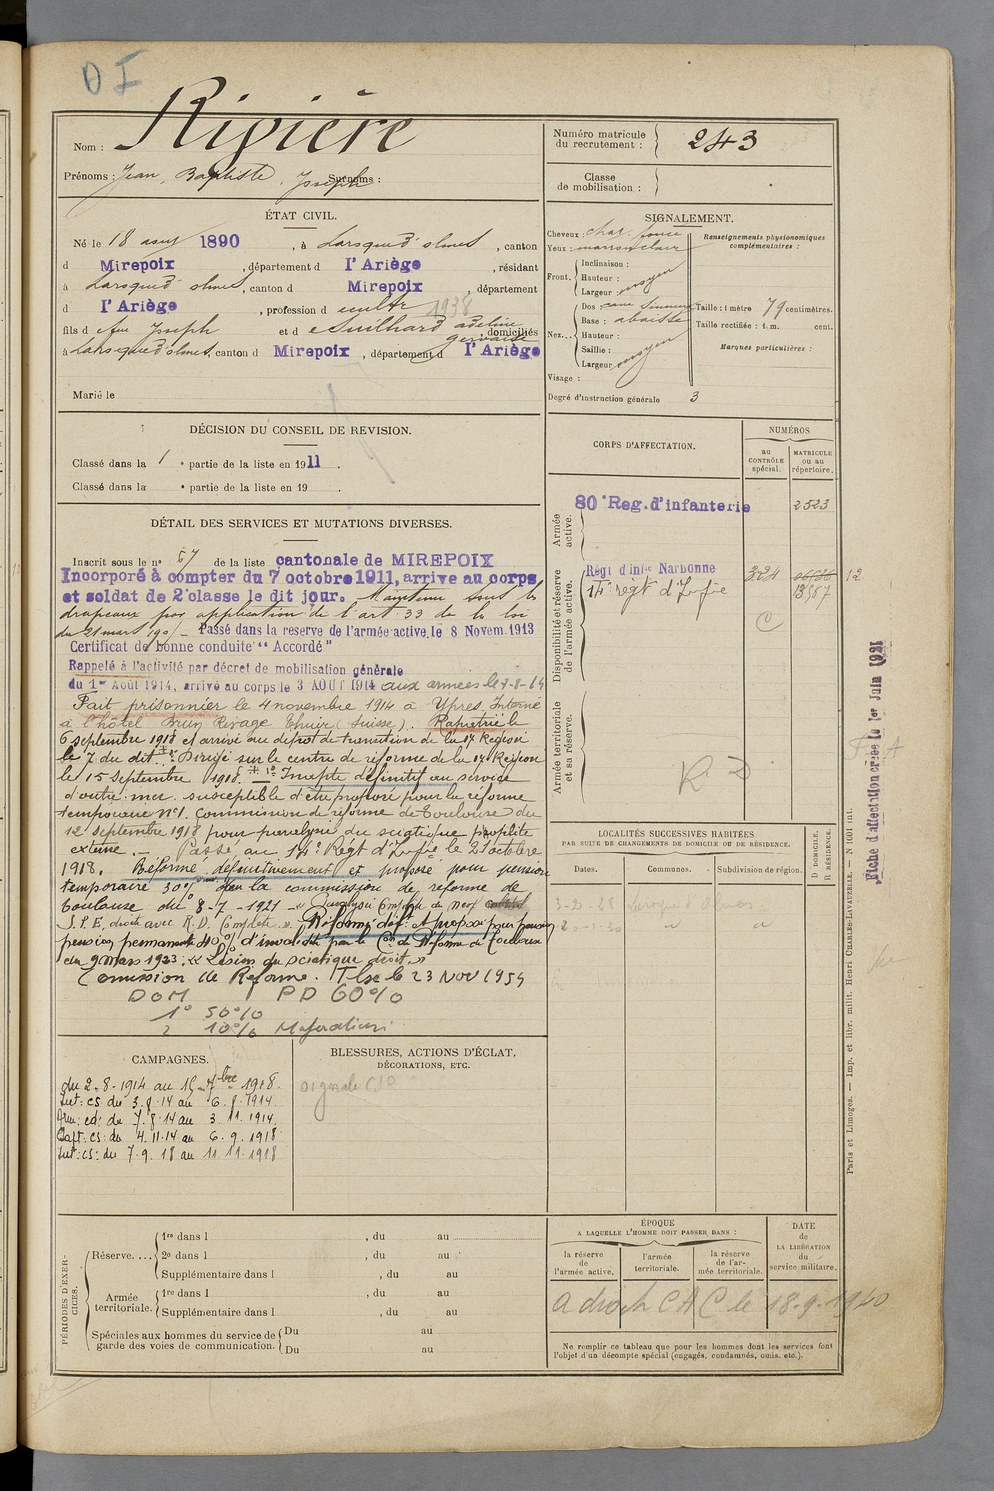 D I
Nom : Rivière
Prénoms : Jean Baptiste Joseph Surnoms :
ÉTAT CIVIL.
Né le 18 août 1890, à Laroque d'olmes, canton
d Mirepoix, département d l'Ariège, résidant
à Laroque d'olmes, canton d Mirepoix, département
d l'Ariège, profession d cultr 1938
fils d feu Joseph et d adeline gervaise domiciliés
à Laroque d'olmes, canton d Mirepoix, département d l'Ariège
Marié le
DÉCISION DU CONSEIL DE REVISION.
Classé dans la 1 e partie de la liste en 1911.
Classé dans la e partie de la liste en 19 .
DÉTAIL DES SERVICES ET MUTATIONS DIVERSES.
Inscrit sous le n° 67 de la liste cantonale de MIREPOIX
Incorporé à compter du 7 octobre 1911, arrivé au corps
et soldat de 2e classe le dit jour. Maintenu sous les
drapeaux par application de l'art 33 de la loi
du 21 mars 190 – Passé dans la reserve de l'armée active, le 8 Novem. 1913
Certificat de bonne conduite "Accordé"
Rappelé à l'activité par décret de mobilisation générale
du 1er Août 1914, arrivé au corps le 3 AOUT 1914 aux armées le 7-8-14
Fait prisonnier le 4 novembre 1914 à Ypres. Interné
à l'hôtel Brun Rivage Thuir (Suisse). Rapatrié le
6 septembre 1918 et arrivé au dépôt de transition de la 17e Région
le 7 du dit. Dirigé sur le centre de réforme de la 17e Région
le 15 septembre 1918. Inapte définitif au service
d'outre-mer. susceptible d'être proposé pour la réforme
temporaire n°1. Commission de réforme de Toulouse du
12 septembre 1918 pour paralysie du sciatique poplité
externe. – Passé au 14e Régt d'Infie le 21 octobre
1918. Réformé définitivement et proposé pour pension
temporaire 30% par la commission de réforme de
Toulouse du 8-7-1921 « Paralysie complète du nerf
S.P.E. droit avec R.D. Complète ». Réformé déf. et proposé pour pension
pension permanente 40% d'invalidité par la Con de Réforme de Toulouse
du 9 mars 1923. « Lésion du sciatique droit »
Comission de Reforme. Tlse le 23 NOV 1954
DOM PD 60%
1° 50%
2 10% Majoration
CAMPAGNES.
du 2-8-1914 au 15-7bre 1918.
Int: cs du 3.8.14 au 6.8.1914.
Arm: cd: du 7.8.14 au 3.11.1914.
Capt: cs: du 4.11.14 au 6.9.1918
Int: cs: du 7.9.18 au 11.11.1918
BLESSURES, ACTIONS D'ÉCLAT,
DÉCORATIONS, ETC.
PÉRIODES D'EXERCICES.
Réserve.... 1re dans l , du au
2e dans l , du au
Supplémentaire dans l , du au
Armée territoriale. 1re dans l , du au
Supplémentaire dans l , du au
Spéciales aux hommes du service de garde des voies de communication. Du au
Du au
Numéro matricule du recrutement : 243
Classe de mobilisation :
SIGNALEMENT.
Cheveux : chat. foncé
Yeux : marron clair
Front. Inclinaison :
Hauteur : moyen
Largeur :
Nez... Dos : cave
Base : abaissé
Hauteur :
Saillie : moyen
Largeur
Visage :
Degré d'instruction générale 3
Renseignements physionomiques complémentaires :
Taille : 1 mètre 79 centimètres.
Taille rectifiée : 1 m. cent.
Marques particulières :
CORPS D'AFFECTATION.
NUMÉROS
au CONTRÔLE spécial.
MATRICULE ou au répertoire.
Armée active.
80e Reg. d'infanterie 2523
Disponibilité et réserve de l'armée active.
Régt d'Infie Narbonne 12
14e régt d'Infie
C
Armée territoriale et sa réserve.
R D
LOCALITÉS SUCCESSIVES HABITÉES
PAR SUITE DE CHANGEMENTS DE DOMICILE OU DE RÉSIDENCE.
Dates.
Communes.
Subdivision de région.
D DOMICILE.
R RÉSIDENCE.
ÉPOQUE
A LAQUELLE L'HOMME DOIT PASSER DANS :
la réserve de l'armée active.
l'armée territoriale.
la réserve de l'armée territoriale.
DATE de LA LIBÉRATION du service militaire.
a droit CAC le 18-9-1940
Ne remplir ce tableau que pour les hommes dont les services font
l'objet d'un décompte spécial (engagés, condamnés, omis, etc.).
Fiche d'affectation créée le 1er Juin 1921
Paris et Limoges. — Imp. et libr. milit. Henri CHARLES-LAVAUZELLE.